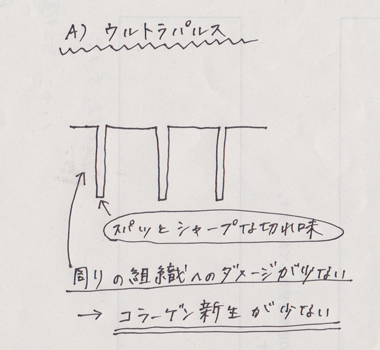 A) ウルトラパルス
スパッとシャープな切れ味
周りの組織へのダメージが少ない
→ コラーゲン新生が少ない